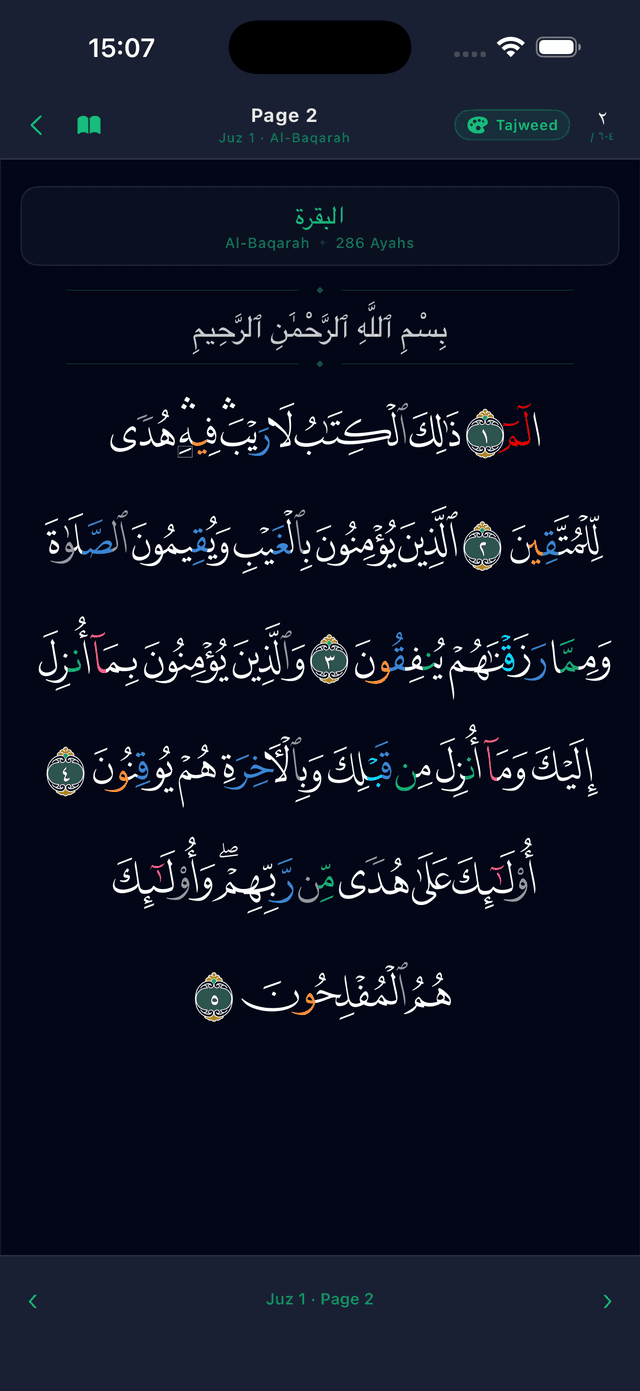 15:07
Page 2
Juz 1 · Al-Baqarah
Tajweed
٢
/ ٦٠٤
البقرة
Al-Baqarah • 286 Ayahs
بِسْمِ ٱللَّهِ ٱلرَّحْمَٰنِ ٱلرَّحِيمِ
الٓمٓ ١ ذَٰلِكَ ٱلْكِتَٰبُ لَا رَيْبَۛ فِيهِۛ هُدًى
لِّلْمُتَّقِينَ ٢ ٱلَّذِينَ يُؤْمِنُونَ بِٱلْغَيْبِ وَيُقِيمُونَ ٱلصَّلَوٰةَ
وَمِمَّا رَزَقْنَٰهُمْ يُنفِقُونَ ٣ وَٱلَّذِينَ يُؤْمِنُونَ بِمَآ أُنزِلَ
إِلَيْكَ وَمَآ أُنزِلَ مِن قَبْلِكَ وَبِٱلْأَخِرَةِ هُمْ يُوقِنُونَ ٤
أُو۟لَٰٓئِكَ عَلَىٰ هُدًى مِّن رَّبِّهِمْۖ وَأُو۟لَٰٓئِكَ
هُمُ ٱلْمُفْلِحُونَ ٥
Juz 1 · Page 2